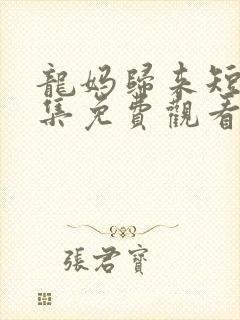 龍媽歸來短
集免費觀看
張君寶